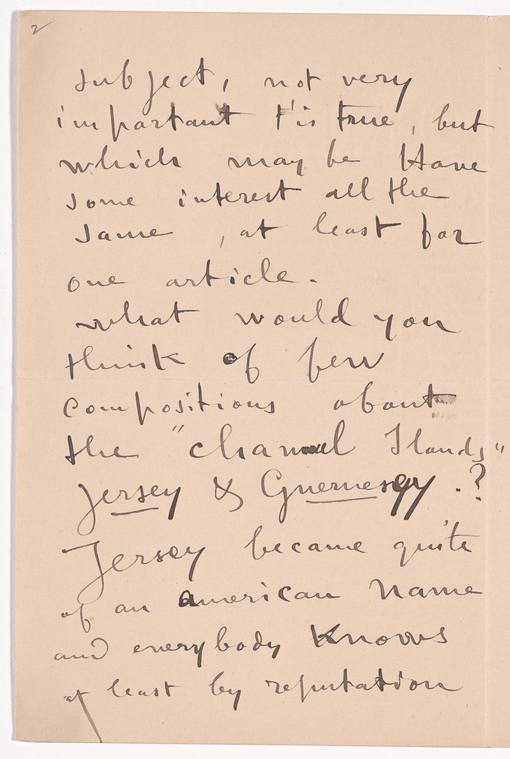 2
subject, not very
important t'is true, but
which may be Have
some interest all the
same, at least for
one article.
what would you
think of few
compositions about
the "channel Ilands"
Jersey & Guernesey.?
Jersey became quite
of an american name
and everybody Knows
at least by reputation